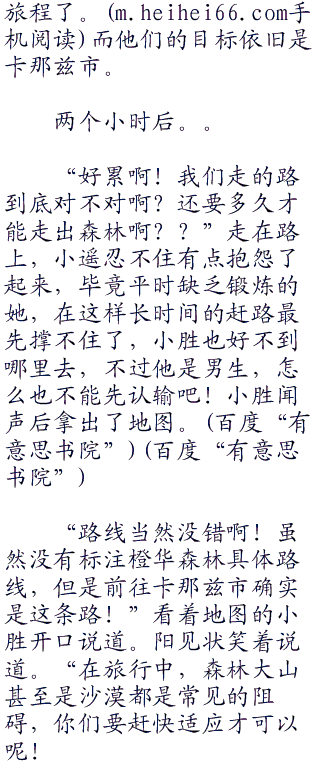 旅程了。(m.heihei66.com手
机阅读)而他们的目标依旧是
卡那兹市。
两个小时后。。
“好累啊！我们走的路
到底对不对啊？还要多久才
能走出森林啊？？”走在路
上，小遥忍不住有点抱怨了
起来，毕竟平时缺乏锻炼的
她，在这样长时间的赶路最
先撑不住了，小胜也好不到
哪里去，不过他是男生，怎
么也不能先认输吧！小胜闻
声后拿出了地图。(百度“有
意思书院”)(百度“有意思
书院”)
“路线当然没错啊！虽
然没有标注橙华森林具体路
线，但是前往卡那兹市确实
是这条路！”看着地图的小
胜开口说道。阳见状笑着说
道。“在旅行中，森林大山
甚至是沙漠都是常见的阻
碍，你们要赶快适应才可以
呢！